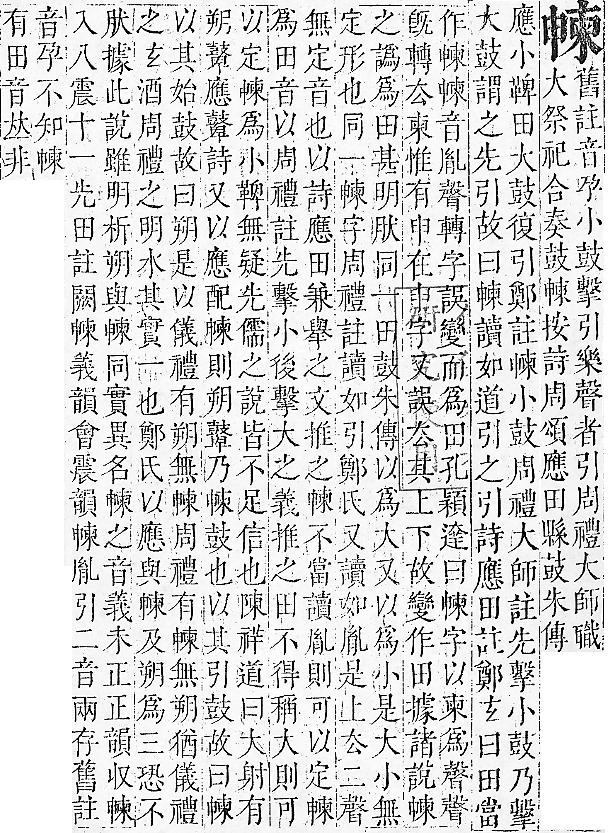 𣌾
舊註音孕小鼓擊引樂聲者引周禮大師職
大祭祀合奏鼓𣌾按詩周頌應田縣鼓朱傳
應小鞞田大鼓復引鄭註𣌾小鼓周禮大師註先擊小鼓乃擊
大鼓謂之先引故曰𣌾讀如道引之引詩應田註鄭玄曰田當
作𣌾𣌾音胤聲轉字誤變而爲田孔穎達曰𣌾字以柬爲聲聲
旣轉去柬惟有申在申字又誤去其上下故變作田據諸說𣌾
之譌爲田甚明肰同一田鼓朱傳以爲大又以爲小是大小無
定形也同一𣌾字周禮註讀如引鄭氏又讀如胤是上去二聲
無定音也以詩應田兼舉之文推之𣌾不當讀胤則可以定𣌾
爲田音以周禮註先擊小後擊大之義推之田不得稱大則可
以定𣌾爲小鞞無疑先儒之說皆不足信也陳祥道曰大射有
朔鼙應鼙詩又以應配𣌾則朔鼙乃𣌾鼓也以其引鼓故曰𣌾
以其始鼓故曰朔是以儀禮有朔無𣌾周禮有𣌾無朔猶儀禮
之玄酒周禮之明水其實一也鄭氏以應與𣌾及朔爲三恐不
肰據此說雖明析朔與𣌾同實異名𣌾之音義未正正韻收𣌾
入八震十一先田註闕𣌾義韻會震韻𣌾胤引二音兩存舊註
音孕不知𣌾
有田音𠀤非